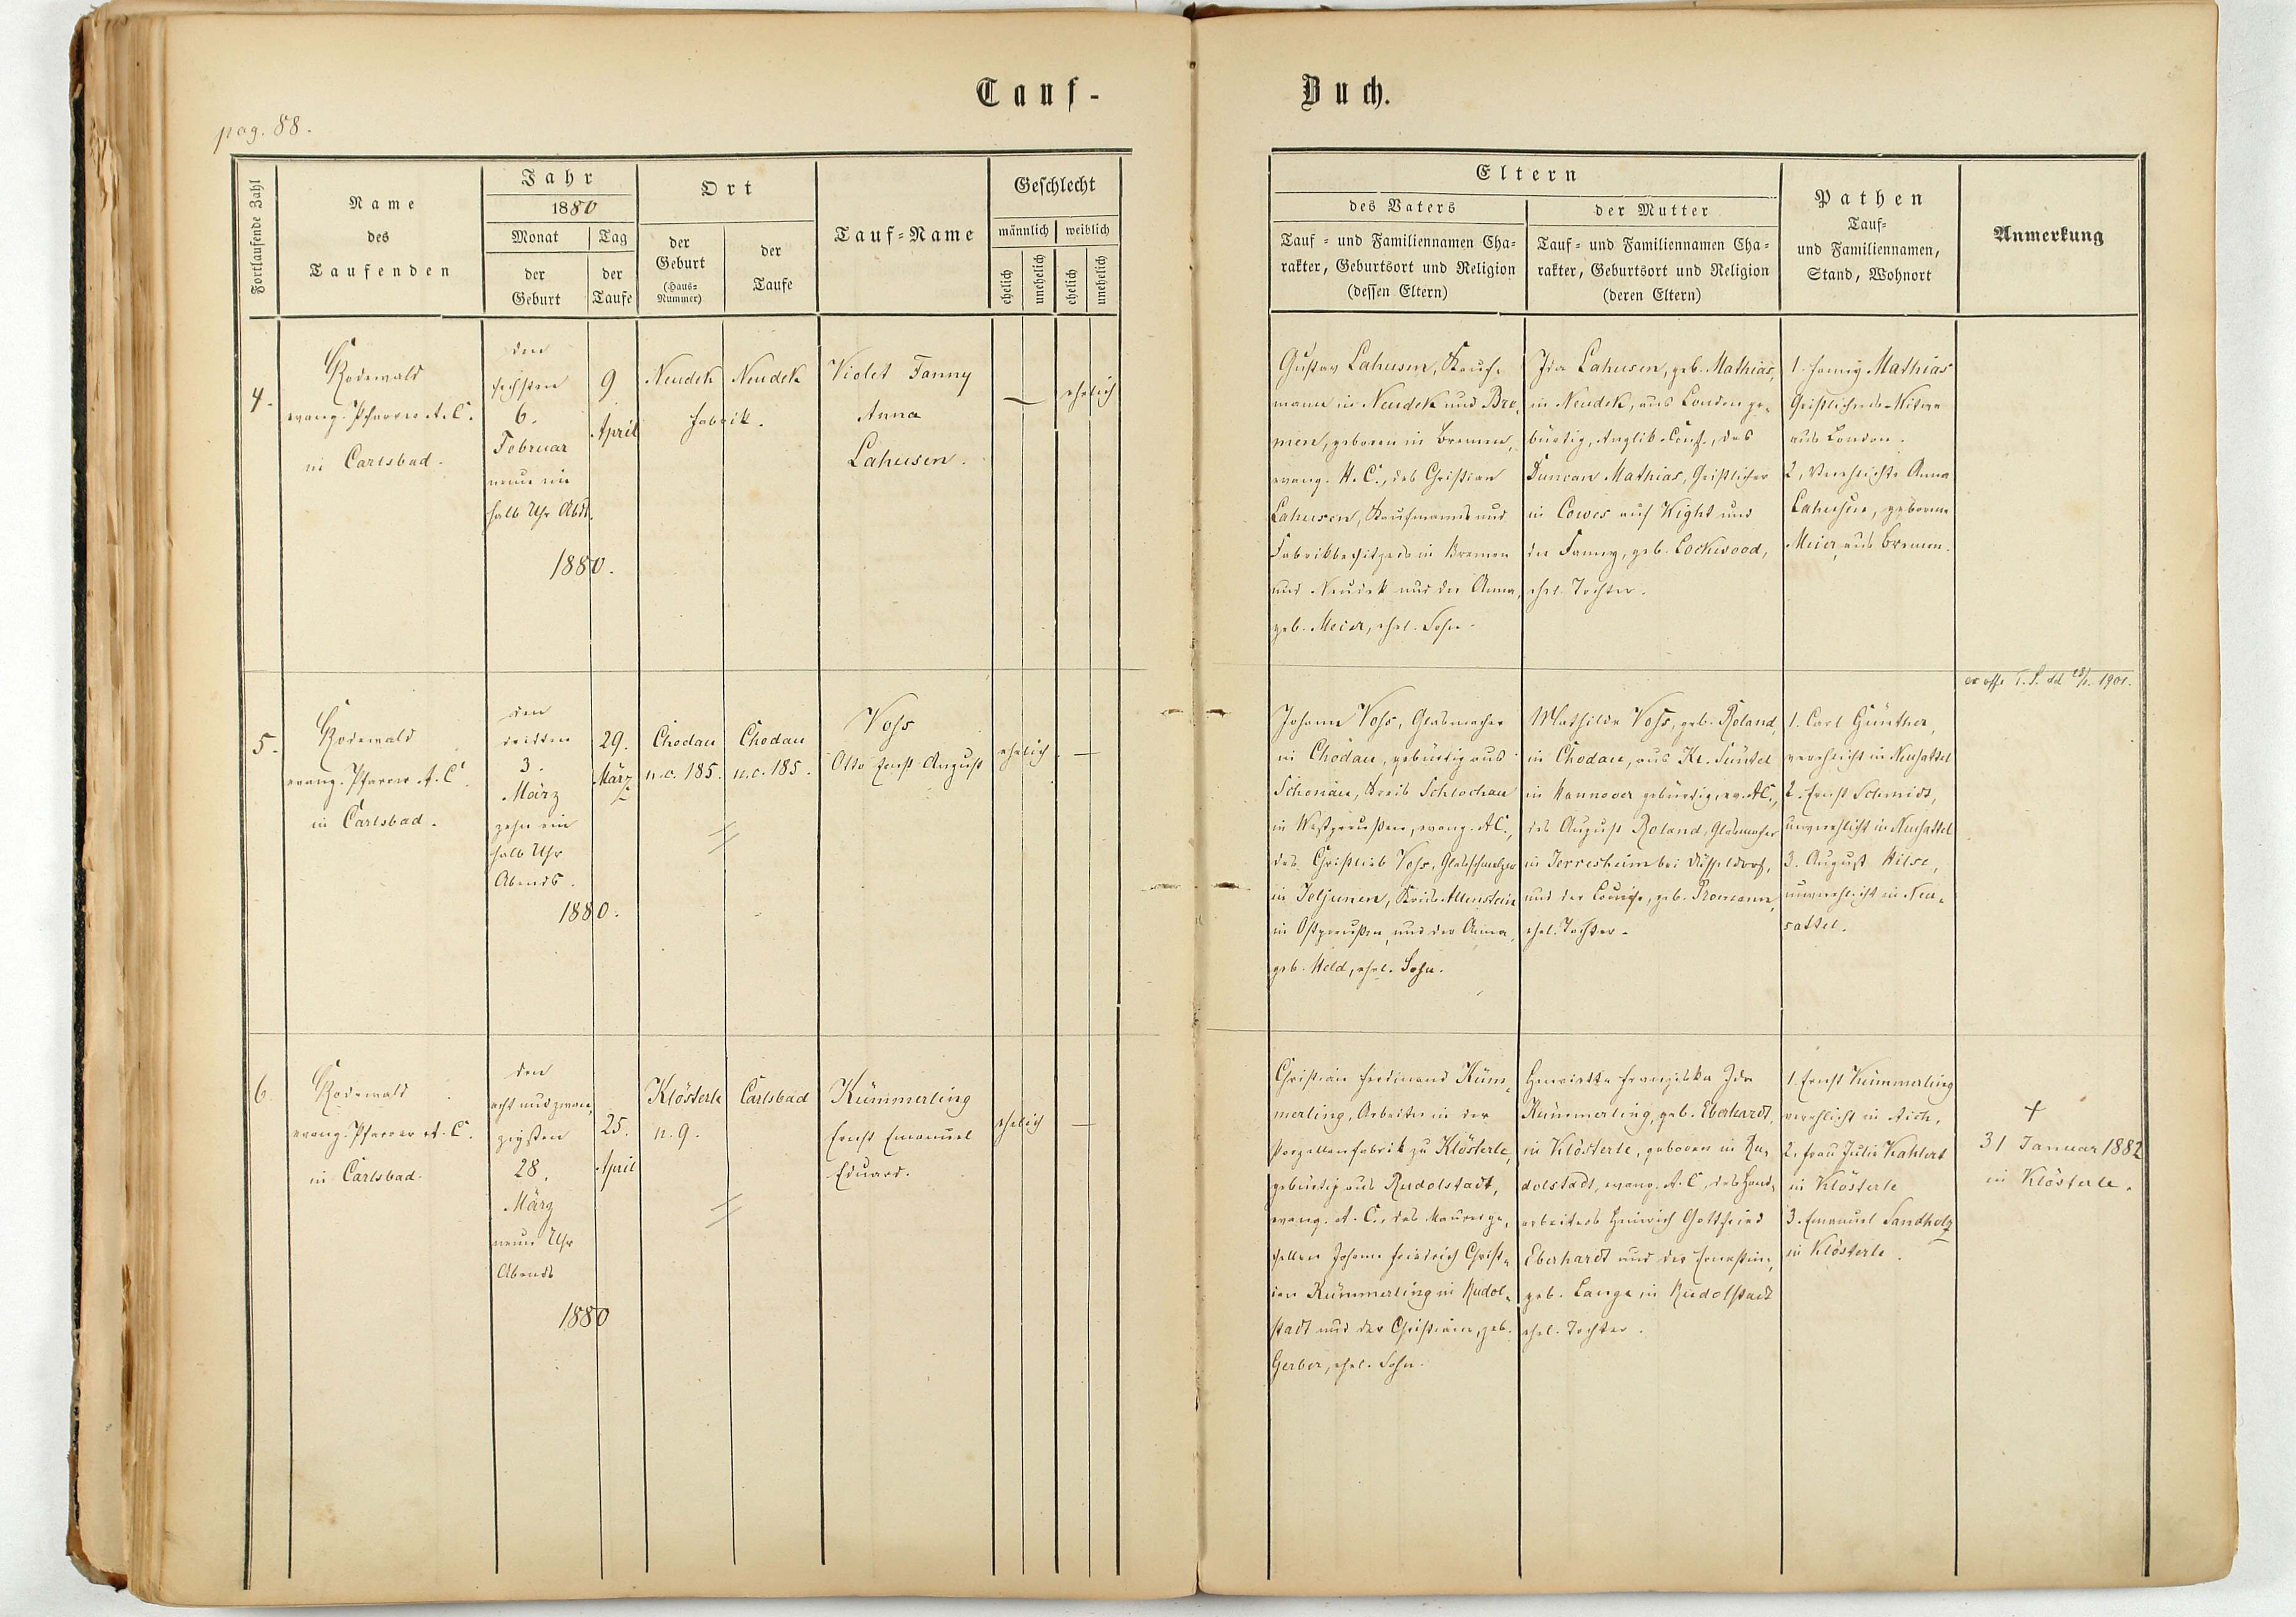 Tauf-
Buch.
pag. 88.
Fortlaufende Zahl
Name
des
Taufenden
Jahr
1880
Monat
der
Geburt
Tag
der
Taufe
Ort
der
Geburt
(Haus-
Nummer)
der
Taufe
Tauf-Name
Geschlecht
männlich
weiblich
ehelich
unehelich
ehelich
unehelich
Eltern
des Vaters
Tauf- und Familiennamen Cha-
rakter, Geburtsort und Religion
(dessen Eltern)
der Mutter
Tauf- und Familiennamen Cha-
rakter, Geburtsort und Religion
(deren Eltern)
Pathen
Tauf-
und Familiennamen,
Stand, Wohnort
Anmerkung
4.
Rodewald
evang. Pfarrer A. C.
in Carlsbad.
den
sechsten
6.
Februar
neun ein
halb Uhr Abds.
1880.
9
April
Neudek
Neudek
Fabrik.
Violet Fanny
Anna
Lahusen.
—
ehelich
Gustav Lahusen, Kauf-
mann in Neudek und Bre-
men, geboren in Bremen,
evang. H. C., des Christian
Lahusen, Kaufmanns und
Fabrikbesitzers in Bremen
und Neudek und der Anna,
geb. Meier, ehel. Sohn.
Ida Lahusen, geb. Mathias,
in Neudek, aus London ge-
bürtig, Anglik. Conf., des
Duncan Mathias, Geistlicher
in Cowes auf Wight und
der Fanny, geb. Lockwood,
ehel. Tochter.
1. Fanny Mathias
Geistlichens-Witwe
aus London.
2, Verehlichte Anna
Lahusen, geborene
Meier, aus Bremen.
5.
Rodewald
evang. Pfarrer A. C.
in Carlsbad.
den
dritten
3.
März
zehn ein
halb Uhr
Abends.
1880.
29.
März
Chodau
n.c. 185.
Chodau
n.c. 185.
Voss
Otto Ernst August
ehelich
—
Johann Voss, Glasmacher
in Chodau, gebürtig aus
Schönau, Kreis Schlochau
in Westpreußen, evang. A.C.,
des Christlieb Voss, Glasschmelzer
in Kreis Allenstein
in Ostpreußen, und der Anna,
geb. Held, ehel. Sohn.
Mathilde Voss, geb. Roland,
in Chodau, aus Kl. Süntel
in Hannover gebürtig, ev. A.C.,
des August Roland, Glasmacher
in Jerresheim bei Düsseldorf,
und der Louise, geb.
ehel. Tochter.
1. Carl Günther,
verehlicht in Neusattel
2. Ernst Schmidt,
unverehlicht in Neusattel
3. August Hilse,
unverehlicht in Neu-
sattel.
1901.
6.
Rodewald
evang. Pfarrer A. C.
in Carlsbad.
den
acht und zwan-
zigsten
28.
März
neun Uhr
Abends
1880
25.
April
Klösterle
n. 9.
Carlsbad
Kümmerling
Ernst Emanuel
Eduard.
ehelich
—
Christian Ferdinand Küm-
merling, Arbeiter in der
Porzellanfabrik zu Klösterle,
gebürtig aus Rudolstadt,
evang. A. C., des Maurerge-
sellen Johann Friedrich Christ-
ian Kümmerling in Rudol-
stadt und der Christiane, geb.
Gerber, ehel. Sohn.
Henriette Franziska Ida
Kümmerling, geb. Eberhardt,
in Klösterle, geboren in Ru-
dolstadt, evang. A. C., des Hand-
arbeiters Heinrich Gottfried
Eberhardt und der Ernestine,
geb. Lange in Rudolstadt
ehel. Tochter.
1. Ernst Kümmerling
verehlicht in Aich.
2. Frau Julie Kahlert
in Klösterle
3. Emanuel Sandholz
in Klösterle.
+
31 Januar 1882
in Klösterle.